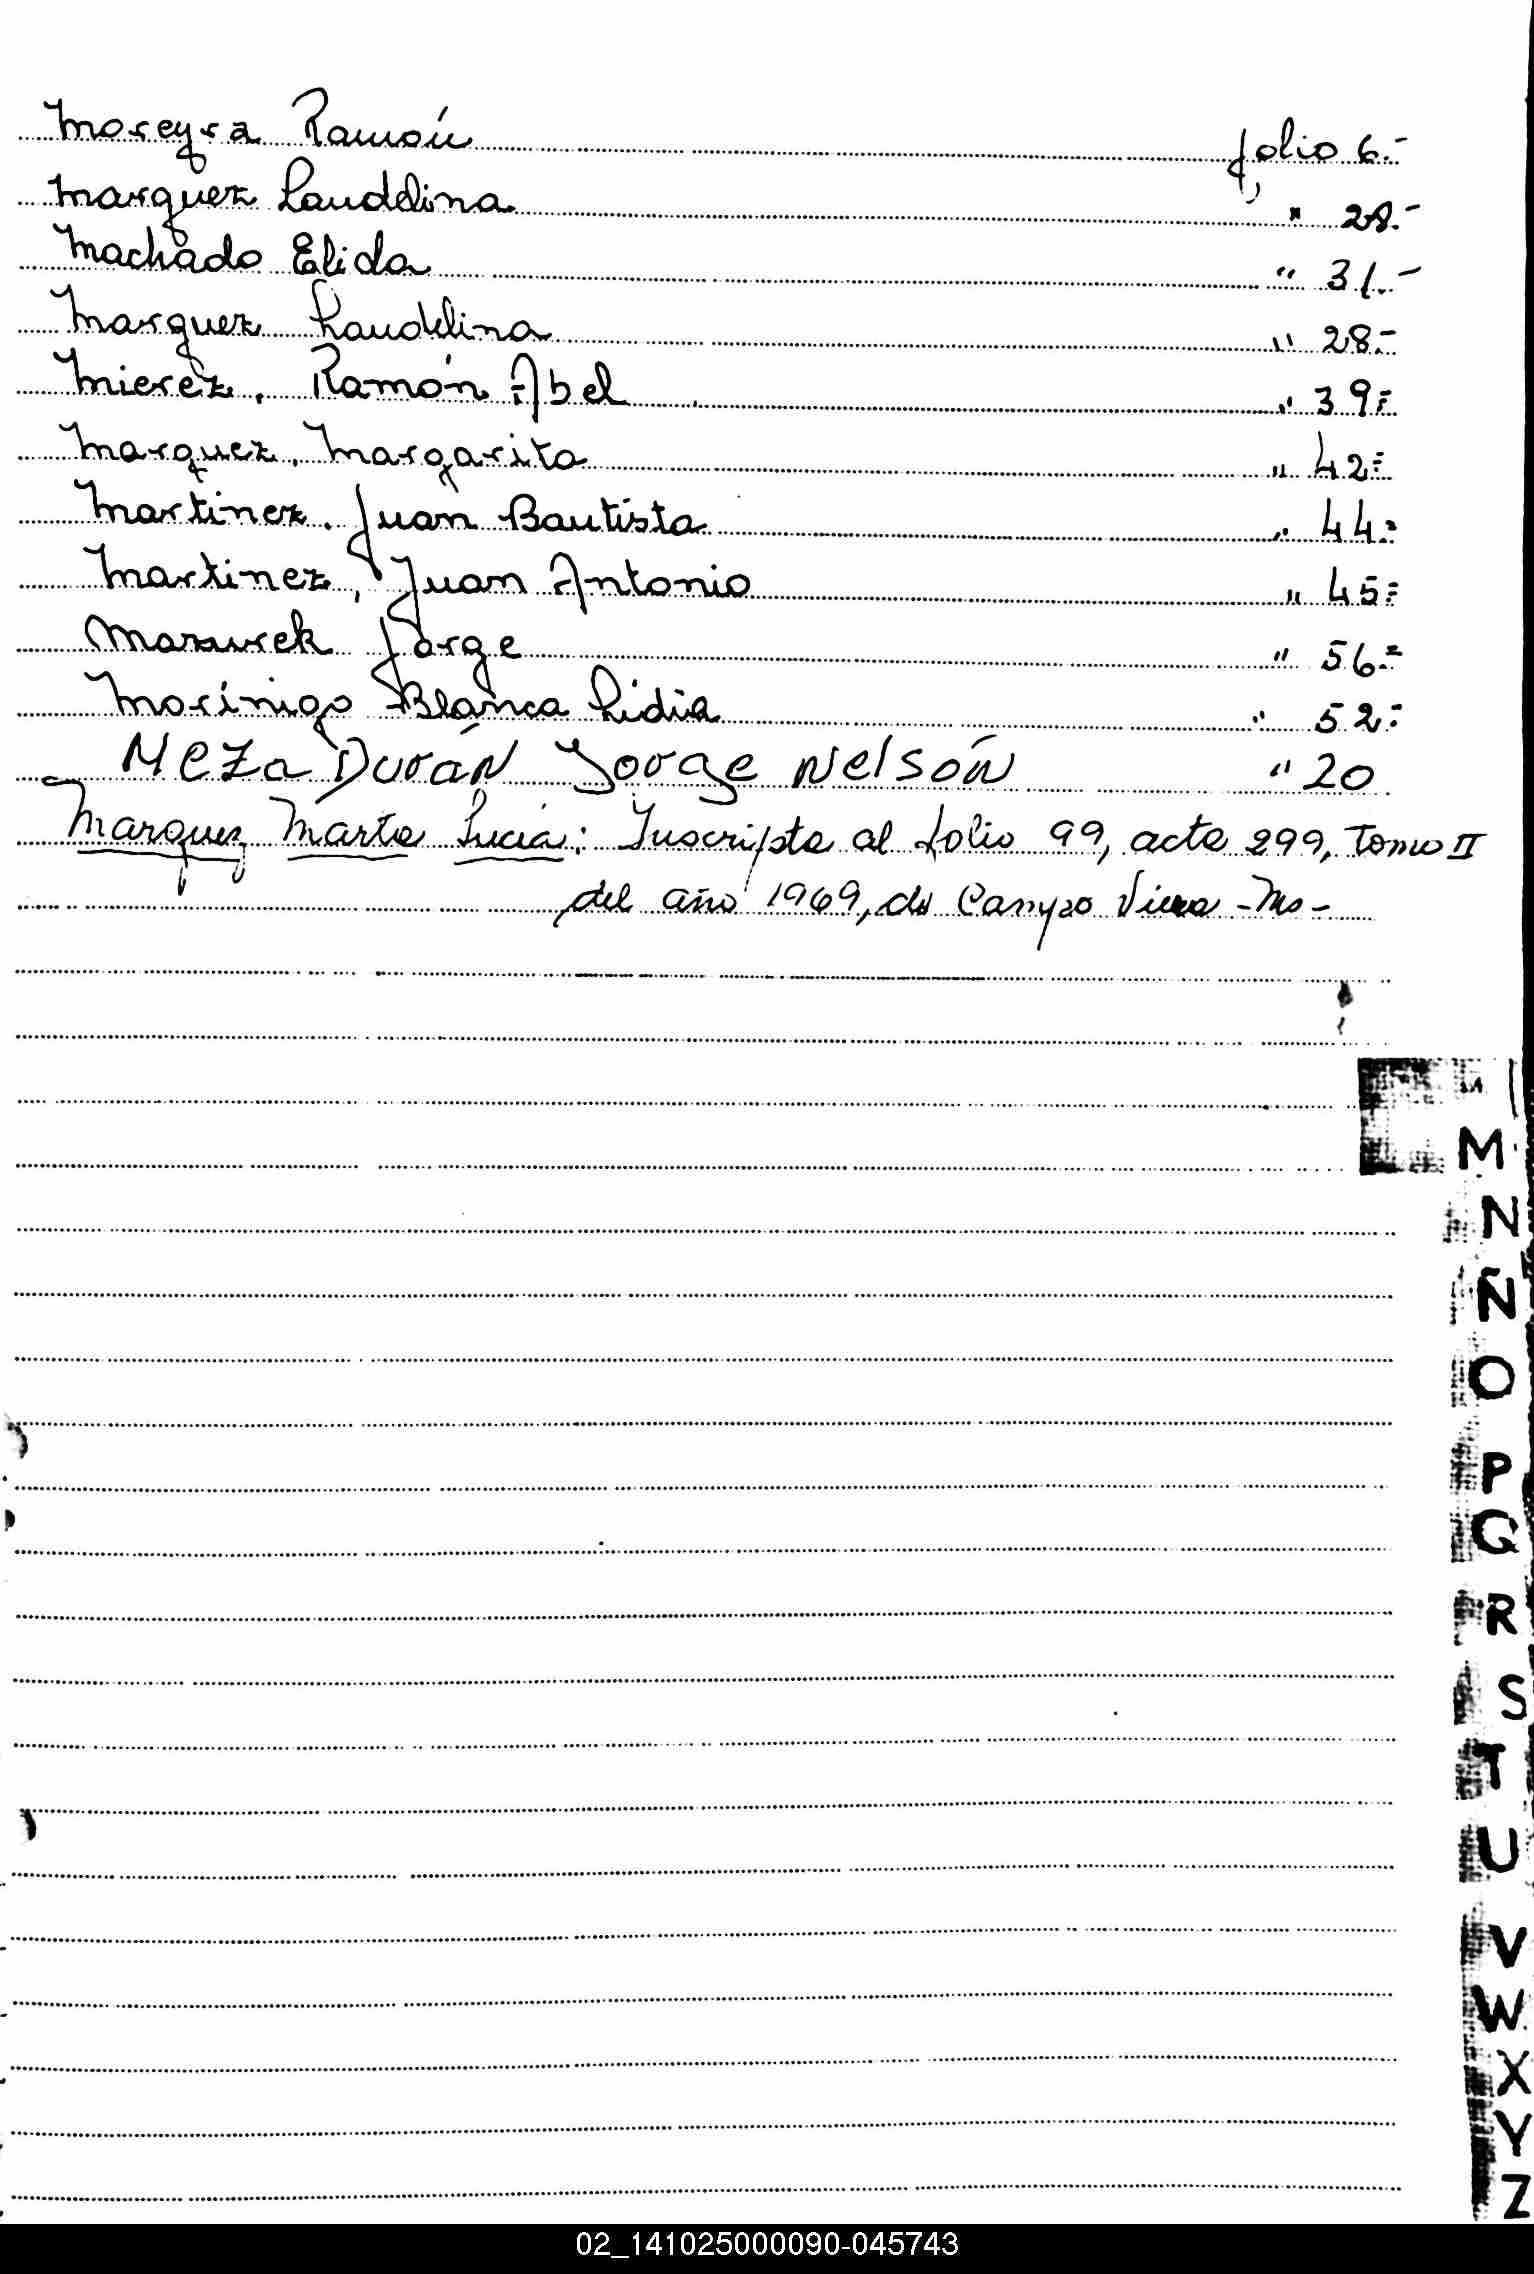 Moreyra Ramón folio 6.-
Marquez Lauddina " 28.-
Machado Elida " 31.-
Marquez Lauddina " 28.-
Mierez, Ramón Abel " 39.=
Marquez, Margarita " 42=
Martinez, Juan Bautista " 44.=
Martinez, Juan Antonio " 45=
Mazurek Jorge " 56.=
Morínigo Blanca Lidia " 52.=
MeZa Durán Jorge Nelsón " 20
Marquez Marta Lucía: Inscripta al folio 99, acta 299, Tomo II
del año 1969, de Campo Viera - Ms -
M
N
Ñ
O
P
Q
R
S
T
U
V
W
X
Y
Z
02_141025000090-045743